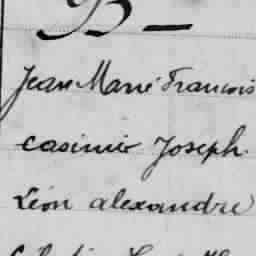 B —
Jean Marié Francois
casimir Joseph.
Léon alexandre